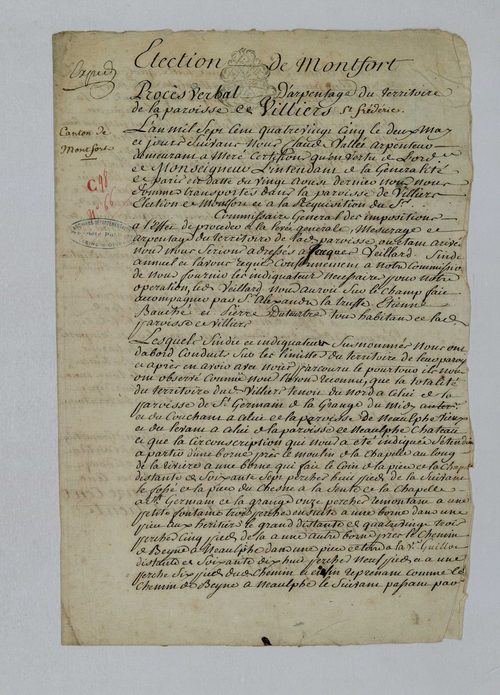 Election de Montfort
Procès verbal D'arpentage du territoire
de la paroisse de Villiers St frédéric.
Canton de
Montfort
C 98
L'an mil Sept Cent quatrevingt Cinq le deux May
et jours Suivans Nous Claude Vallée arpenteur
demeurant a Meré Certifions qu'en Vertu de L'ordre
de Monseigneur L'intendant de la Generalité
de paris en datte du vingt Aoust dernier nous nous
Sommes transportés dans la paroisse de Villiers
Election de Monfort et a la Requisition du Sr.
Commissaire General des impositions
a L'effet de proceder a la Levée generale, Mesurage et
arpentage du territoire de lad. paroisse, ou etant arrivé
Nous nous Serions adressés a Jacques Veillard Sindic
annuel et L'avons requis Conformement a Notre Commission
de Nous fournir les indicateurs necessaire pour notre
operation, led. Veillard Nous auroit Sur le Champ fait
accompagner par St. Alexandre la truffe Etienne
Bauché et Pierre Dutartre tous habitans de lad.
paroisse de Villiers
Lesquels Sindic et indicateurs Susnommés Nous ont
dabord Conduit Sur les limittes du territoire de leur paroisse
et après en avoir avec Nous parcouru le pourtour ils nous
ont observé Comme Nous L'avons reconnu, que la totalité
du territoire dud. Villiers tenoit du Nord a Celui de la
paroisse de St. Germain de la Grange du Midy
et du Couchant a celui de la paroisse de Neaulphe le Vieux
et du levant a Celui de la paroisse de Neaulphe Chateau
et que la Circonscription qui nous a eté indiquée S'etendoit
a partir d'une borne près le moulin de la Chapelle au long
de la riviere a une borne qui fait le Coin de la piece de la Chapelle
distante de Soixante Sept perches huit pieds de la Suivant
le fossé de la piece du Chesne a la Sente de la Chapelle
a St. Germain de la grange onze perches remontant a une
petite fontaine trois perches ensuite a une borne dans une
piece aux heritiers le grand distante de quatrevingt trois
perches Cinq pieds de la a une autre borne près le Chemin
de Beyne a Neaulphe dans une piece de terre a la Ve. Guillon
distante de Soixante dix huit perches Neuf pieds et a une
perche Six pieds dud. Chemin et enfin reprenant comme le
Chemin de Beyne a Neaulphe le Suivant passant par